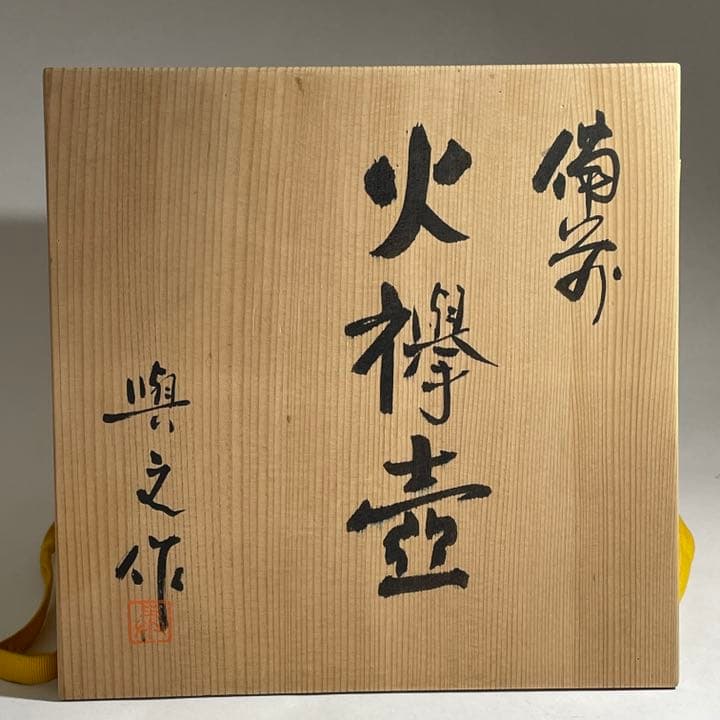 備前
火襷壺
興之作